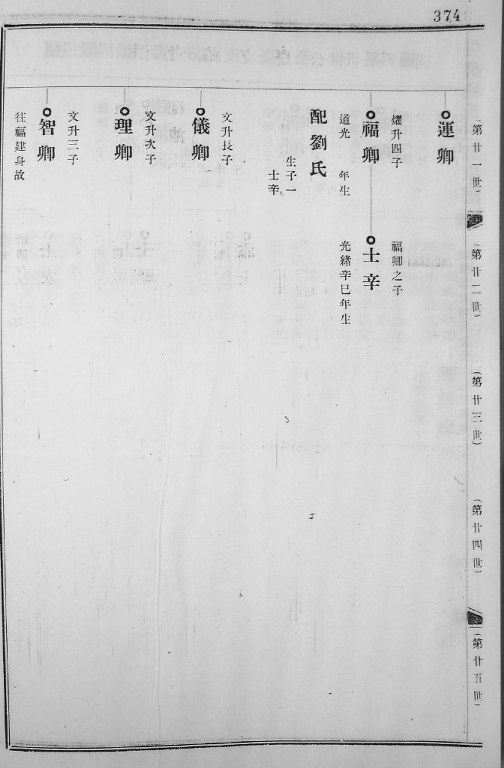 374
(第廿一世)
(第廿二世)
(第廿三世)
(第廿四世)
(第廿五世)
運卿
燿升四子
福卿
道光 年生
配劉氏
生子一
士辛
福卿之子
士辛
光緒辛巳年生
文升長子
儀卿
文升次子
理卿
文升三子
智卿
往福建身故